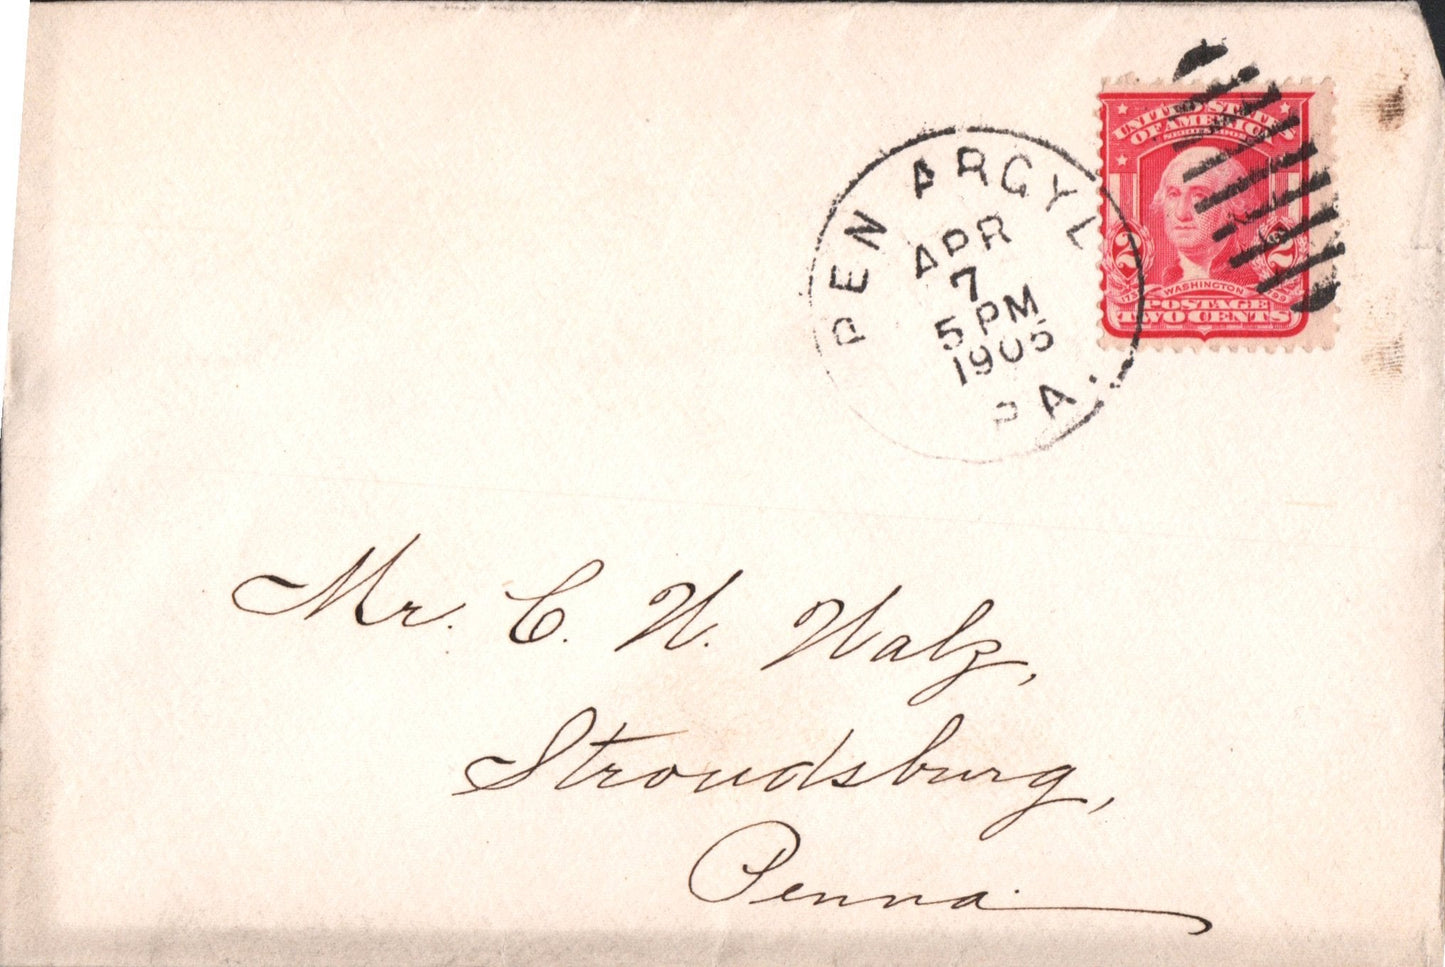 PEN ARGYL
APR
7
5 PM
1905
PA.
UNITED STATES
OF AMERICA
2
2
WASHINGTON
POSTAGE
TWO CENTS
Mr. C. W. Walz,
Stroudsburg,
Penna.